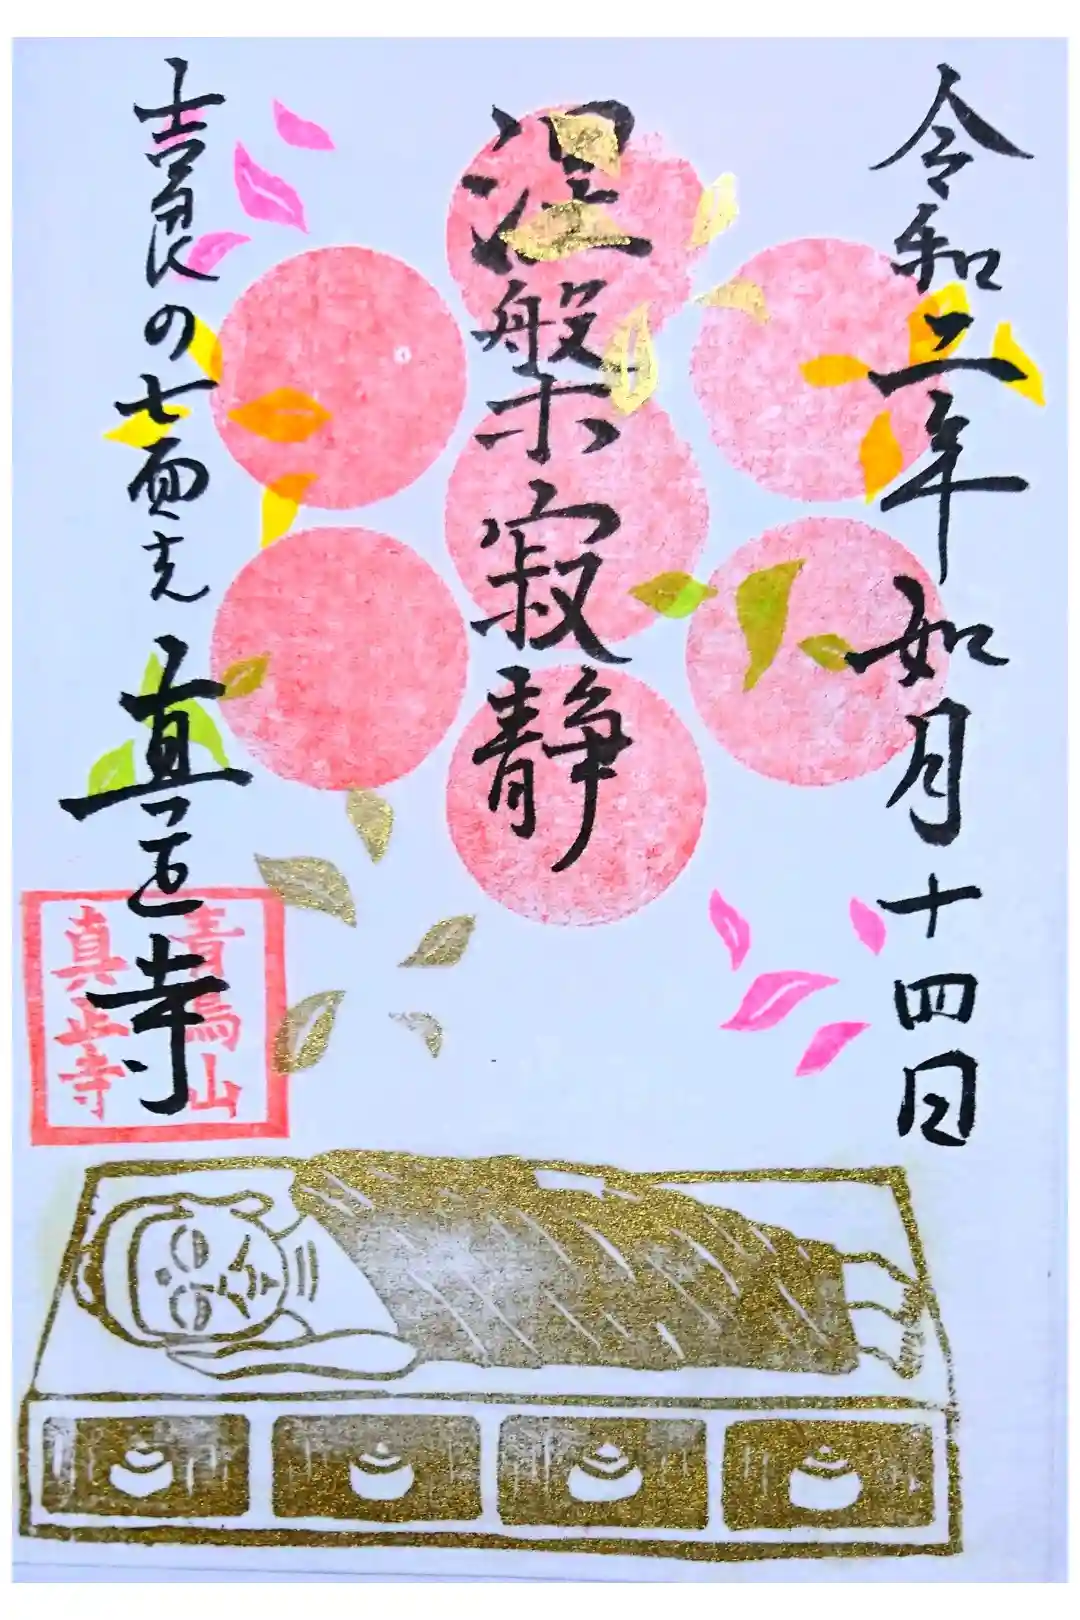 令和二年 如月 十四日
涅槃寂静
吉良の七面さん 真正寺
青鳥山
真正寺